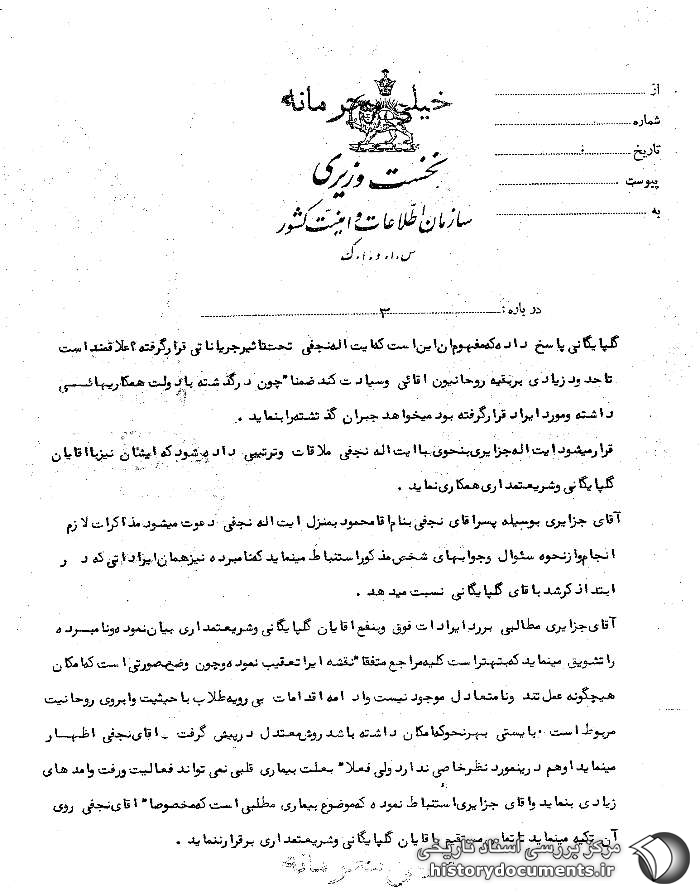 خیلی محرمانه
نخست وزیری
سازمان اطلاعات و امنیت کشور
س.ا.و.ا.ک
از
شماره
تاریخ
پیوست
به
در باره : ۳
گلپایگانی پاسخ داده که مفهوم ان این است که ایت اله نجفی تحت تاثیر جریاناتی قرار گرفته ؟ علاقمند است
تا حدود زیادی بر بقیه روحانیون اقائی وسیادت کند ضمنا" چون در گذشته با دولت همکاریهائی
داشته ومورد ایراد قرار گرفته بود میخواهد جبران گذشته را بنماید .
قرار میشود ایت اله جزایری بنحوی با ایت اله نجفی ملاقات وترتیبی داده شود که ایشان نیز با اقایان
گلپایگانی وشریعتمداری همکاری نماید .
آقای جزایری بوسیله پسر اقای نجفی بنام اقا محمود بمنزل ایت اله نجفی دعوت میشود مذاکرات لازم
انجام واز نحوه سئوال وجوابهای شخص مذکور استنباط مینماید که نامبرده نیز همان ایراداتی که در
ابتدا ذکر شد باقای گلپایگانی نسبت میدهد .
آقای جزایری مطالبی بر رد ایرادات فوق وبنفع اقایان گلپایگانی وشریعتمداری بیان نموده ونامبرده
را تشویق مینماید که بهتر است کلیه مراجع متفقا" نقشه ایرا تعقیب نموده وچون وضع بصورتی است که امکان
هیچگونه عمل تند ونامتعادل موجود نیست وادامه اقدامات بی رویه طلاب با حیثیت وابروی روحانیت
مربوط است . بایستی بهر نحو که امکان داشته باشد روش معتدل در پیش گرفت . اقای نجفی اظهار
مینماید او هم در ینمورد نظر خاصی ندارد ولی فعلا" بعلت بیماری قلبی نمی تواند فعالیت ورفت وامد های
زیادی بنماید واقای جزایری استنباط نموده که موضوع بیماری مطلبی است که مخصوصا" اقای نجفی روی
آن تکیه مینماید تا تماس مستقیم با اقایان گلپایگانی وشریعتمداری برقرار ننماید .
خیلی محرمانه
مرکز بررسی اسناد تاریخی
historydocuments.ir